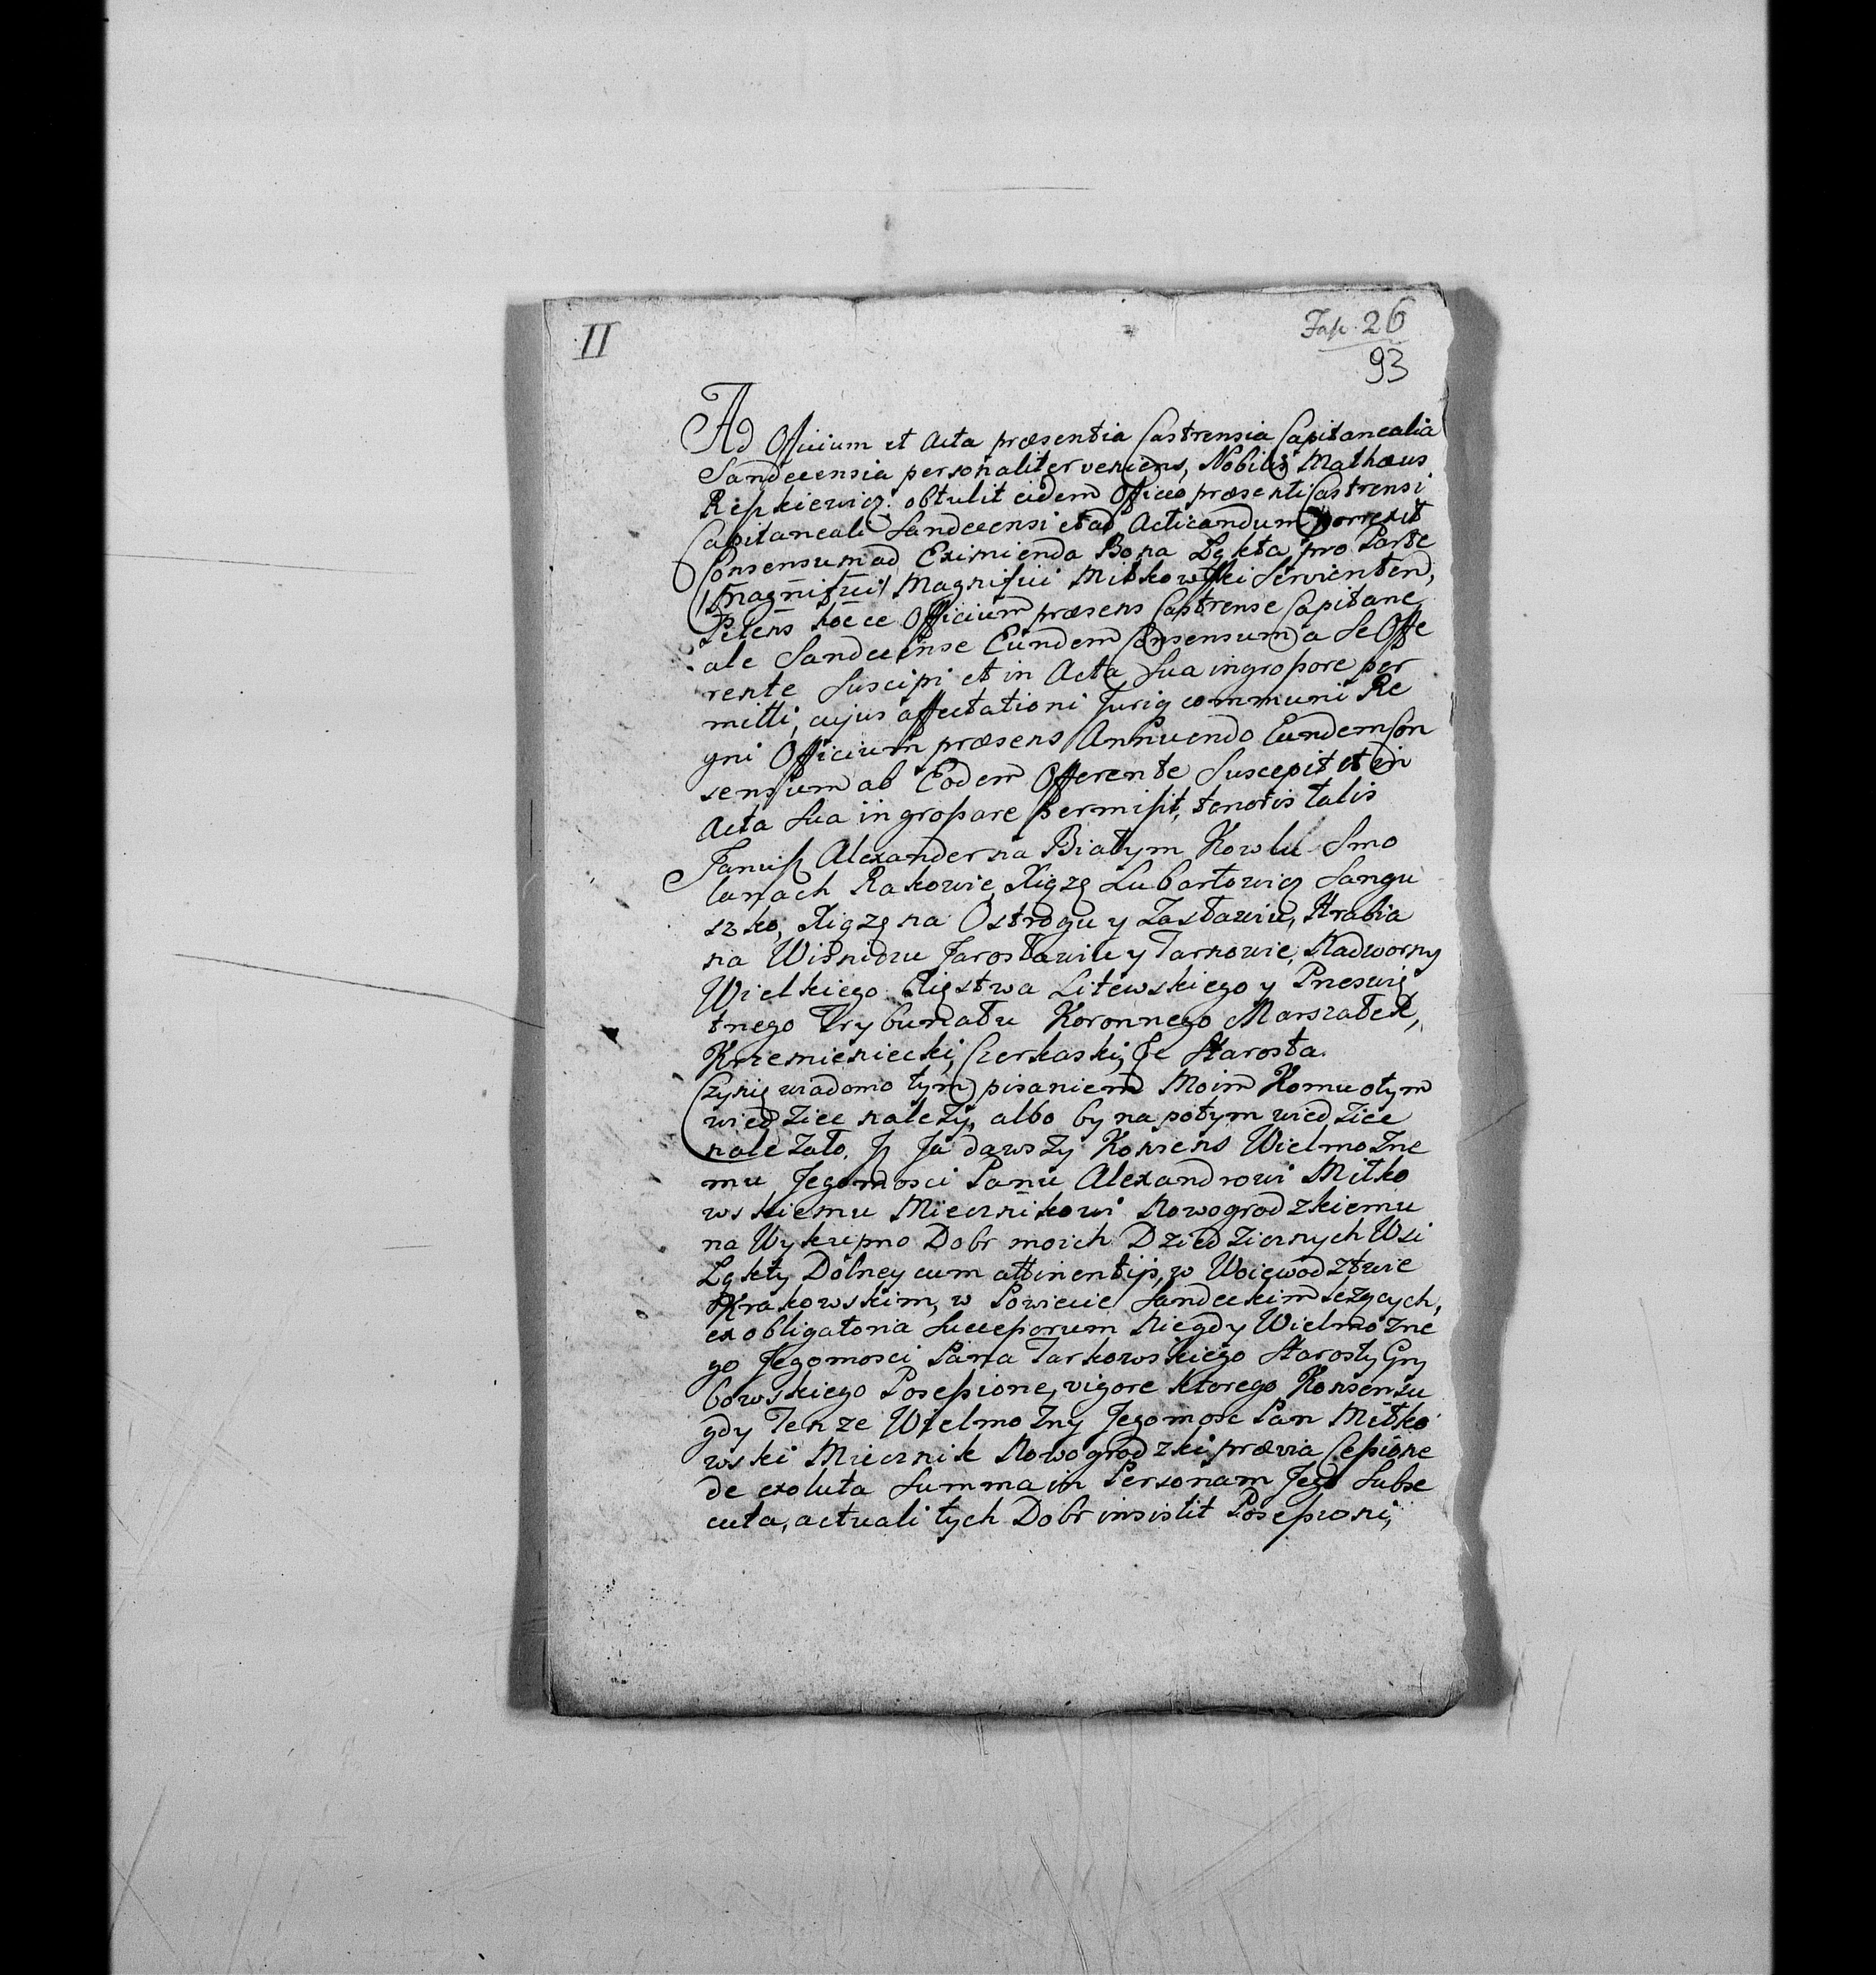 II
Fasc. 26
93
Ad Officium et Acta præsentia Castrensia Capitanealia
Sandecensia personaliter veniens, Nobilis Mathæus
Repkiewicz obtulit eidem Officio præsenti Castrensi
Capitaneali Sandecensi et ad Acticandum porrexit
Consensum ad Eximienda Bona Łąkta pro Parte
Magnifici Magnifici Miłkowski Servientem,
Petens hocce Officium præsens Castrense Capitane
ale Sandecense Eundem Consensum a Se Offe
rente Suscipi et in Acta Sua ingrossare per
mitti, cujus affectationi Juriq communi Re
gni Officium præsens Annuendo Eundem Con
sensum ab Eodem Offerente Suscepit et in
Acta Sua ingrossare permisit, tenoris talis
Janusz Alexander na Białym Kowlu Smo
lanach Rakowie, Xiąże Lubartowicz Sangu
szko, Xiąże na Ostrogu y Zasławiu, Hrabia
na Wiśniczu Jarosławiu y Tarnowie, Nadworny
Wielkiego Xięstwa Litewskiego y Prześwię
tnego Trybunału Koronnego Marszałek,
Krzemieniecki, Czerkaski, &c Starosta.
Czynię wiadomo tym pisaniem Moim Komu o tym
wiedziec należy, albo by na potym wiedziec
należało. Jż Ja dawszy Konsens Wielmożne
mu Jegomosci Panu Alexandrowi Miłko
wskiemu Miecznikowi Nowogrodzkiemu
na Wykupno Dobr moich Dziedzicznych Wsi
Łąkty Dolney cum attinentijs, w Woiewodztwie
Krakowskim, w Powiecie Sandeckim leżących,
ex obligatoria Successorum Niegdy Wielmożne
go Jegomosci Pana Tarkowskiego Starosty Gry
bowskiego Possessione, vigore ktorego Konsensu
gdy Tenze Wielmożny Jegomosc Pan Miłko
wski Miecznik Nowogrodzki prævia Cessione
de exoluta Summa in Personam Jego Subse
cuta, actuali tych Dobr insistit Possessioni,